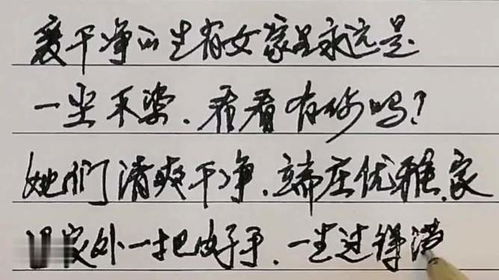 爱干净的生肖女家里永远是
一尘不染.看看有你吗?
她们清爽干净.端庄优雅.家
里家外一把好手.一生过得满